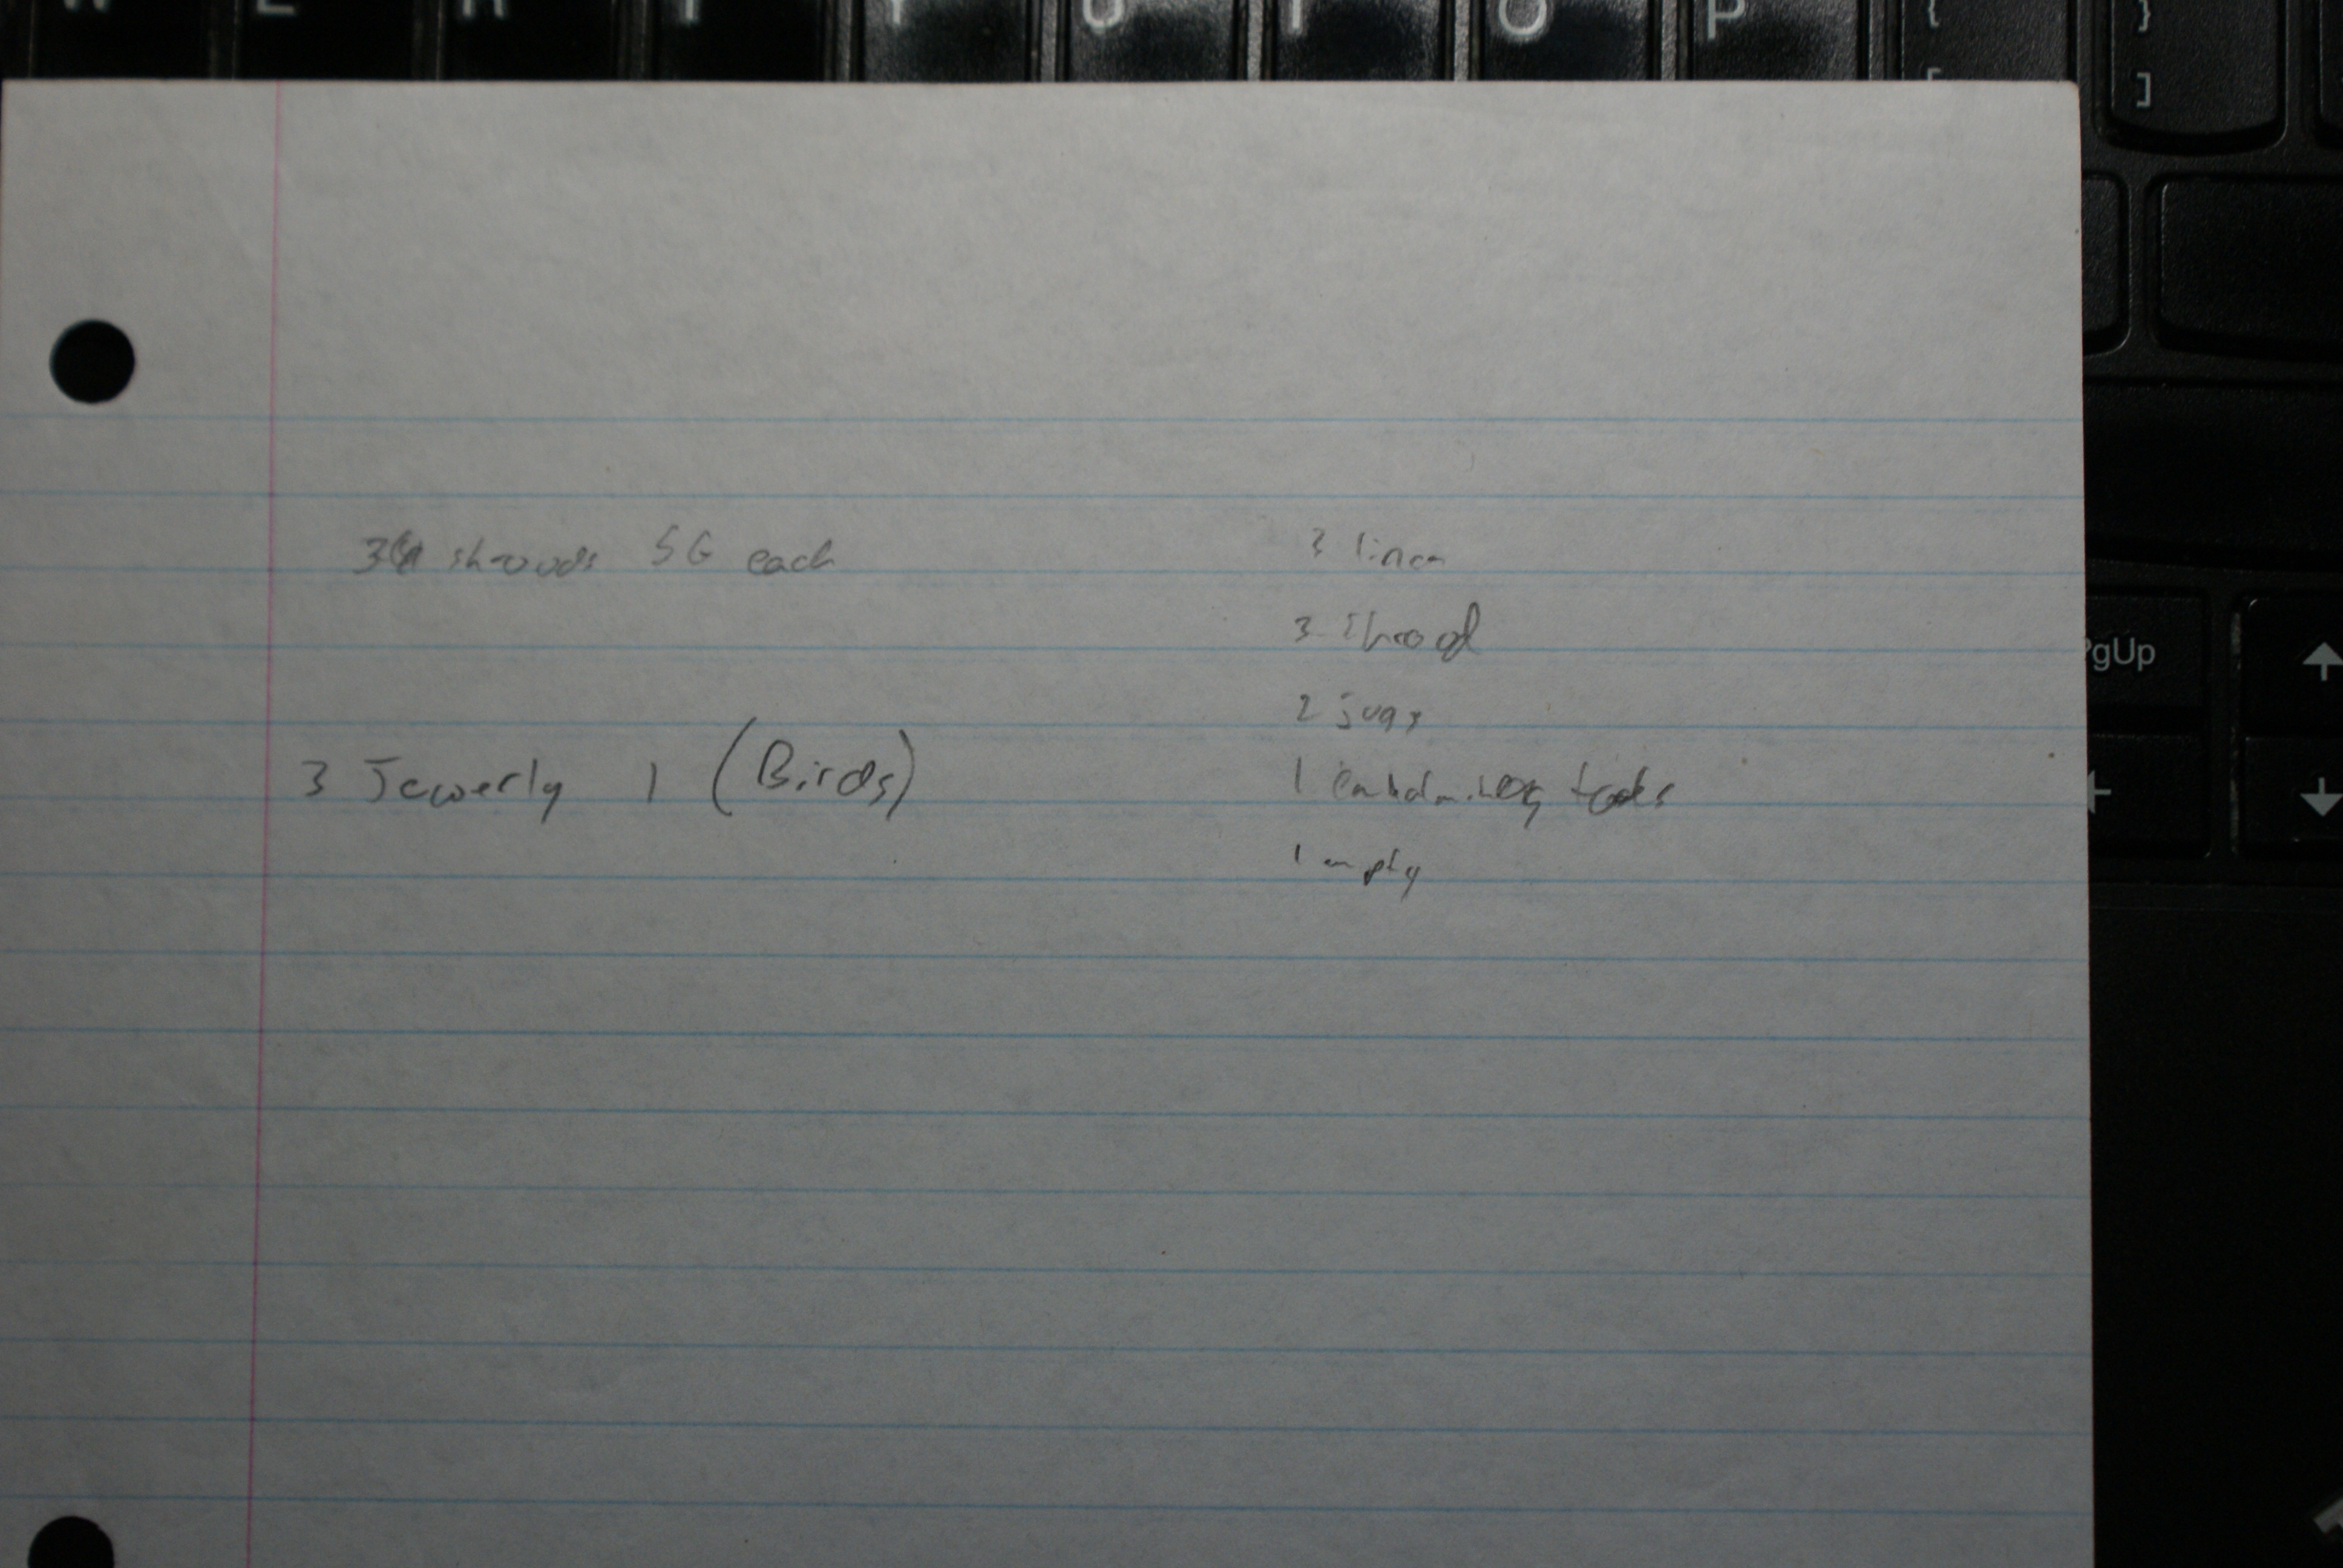 W E R T Y U I O P { }
[ ]
3 shrouds 5G each
3 Jewerly 1 (Birds)
3 linen
3 thread
2 jugs
1 embalming tools
1 empty
PgUp